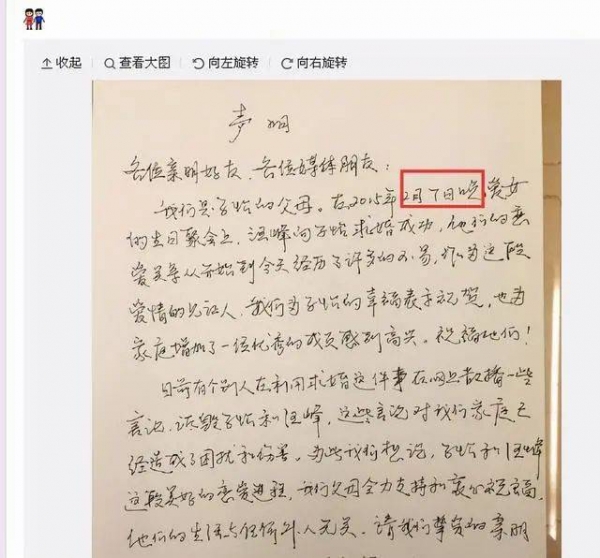 收起 查看大图 向左旋转 向右旋转
声明
各位亲朋好友、各位媒体朋友：
我们是子怡的父母。在2015年2月7日晚爱女
的生日聚会上，汪峰向子怡求婚成功，他们的恋
爱关系从开始到今天经历了许多的不易，作为这段
爱情的见证人，我们为子怡的幸福表示祝贺，也为
家庭增加了一位优秀的成员感到高兴。祝福他们！
目前有个别人在利用求婚这件事在网上散播一些
言论，诋毁子怡和汪峰，这些言论对我们家庭已
经造成了困扰和伤害。为此我们想说，子怡和汪峰
这段美好的恋爱进程，我们父母全力支持和衷心祝福，
他们的生活与任何外人无关。请我们挚爱的亲朋